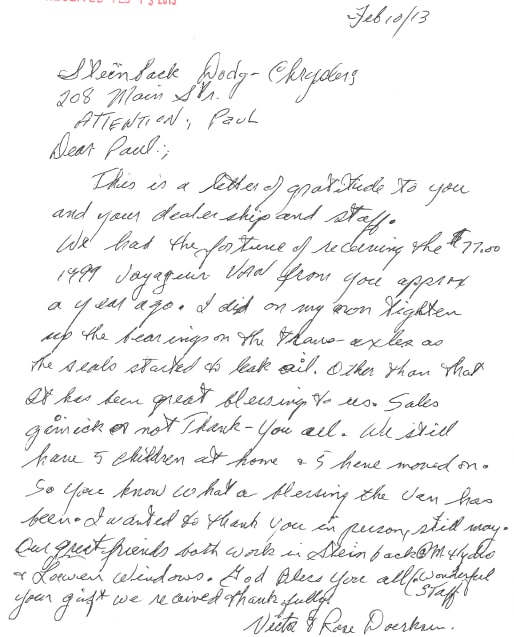 RECEIVED FEB 13 2013
Feb 10/13
Steinback Dodg- Chryslers
208 Main Str.
ATTENTION; Paul
Dear Paul:;
This is a letter of gratitude to you
and your dealership and staff.
We had the fortune of receiving the $77.00
1499 Voyageur Van from you approx
a year ago. I did on my own tighten
up the bearings on the trans-axles as
the seals started to leak oil. Other than that
it has been great blessing to us. Sales
gimick or not Thank-You all. We still
have 5 children at home & 5 have moved on.
So you know what a blessing the van has
been. I wanted to thank you in person, still may.
Our great friends both work in Steinback @ M. Hydro
& Lowen Windows. God Bless you all, (Wonderful
Staff
your gift we received thankfully.
Victor & Rose Doerksen.